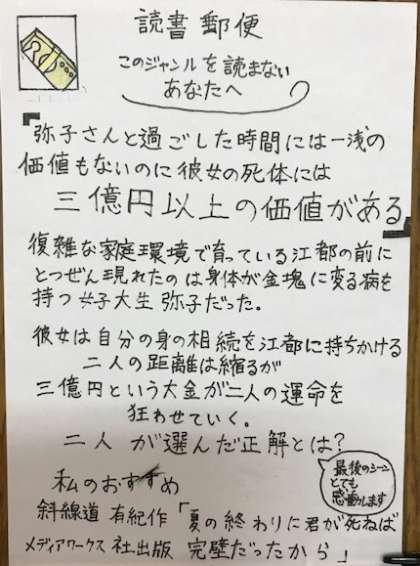 読書郵便
このジャンルを読まない
あなたへ
「弥子さんと過ごした時間には一浅の
価値もないのに彼女の死体には
三億円以上の価値がある」
復雑な家庭環境で育っている江都の前に
とつぜん現れたのは身体が金塊に変る病を
持つ女子大生 弥子だった。
彼女は自分の身の相続を江都に持ちかける
二人の距離は縮るが
三億円という大金が二人の運命を
狂わせていく。
二人が選んだ正解とは?
最後のシーン
とても
感動します
私のおすすめ
斜線道 有紀作「夏の終わりに君が死ねば
メディアワークス 社出版 完壁だったから」